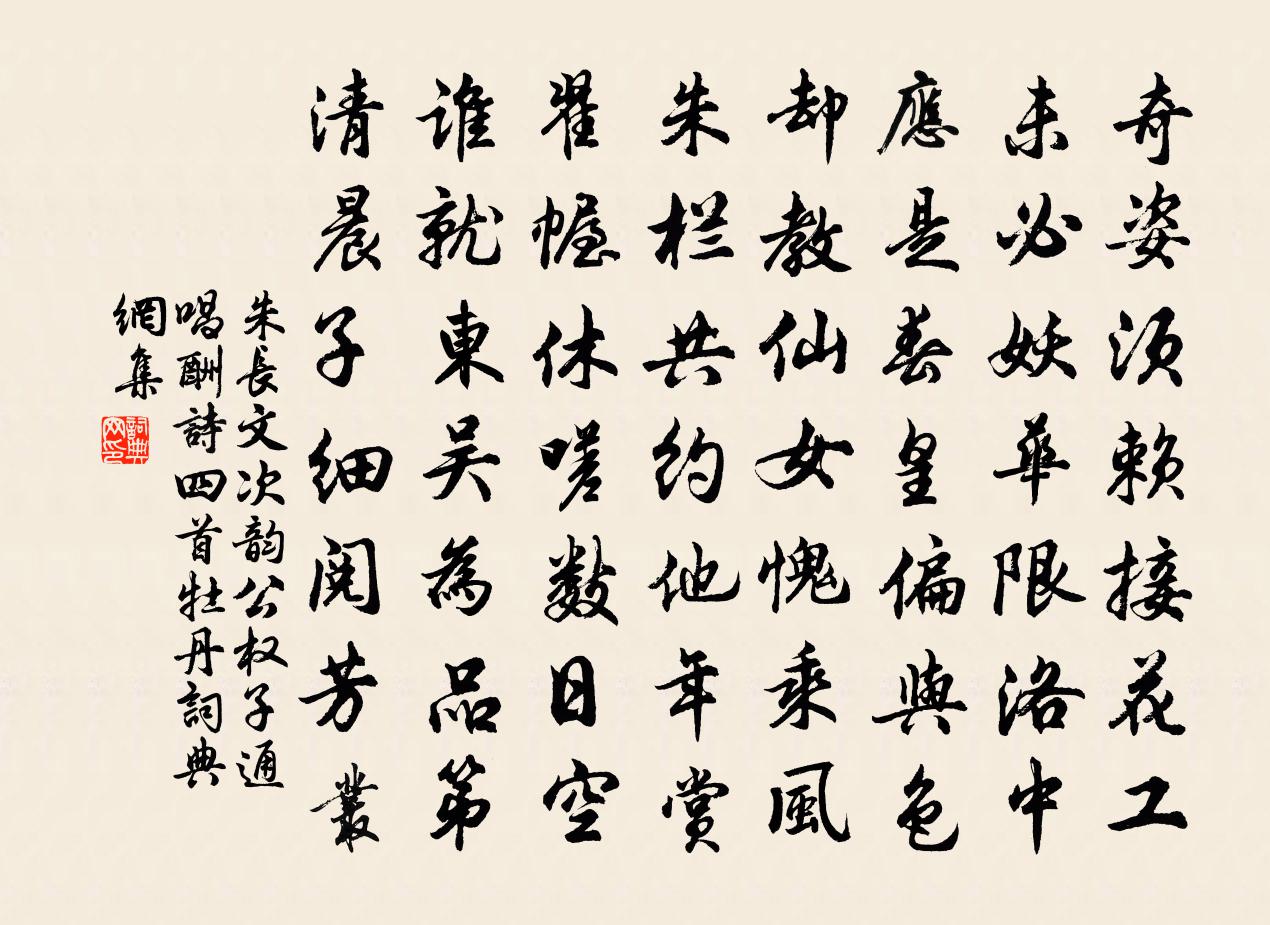 奇姿须赖接花工
未必妖華限洛中
應是春皇偏與色
却教仙女愧乘風
朱栏共约他年赏
翠幄休嗟数日空
谁就東吴為品第
清晨子细阅芳叢
朱長文次韵公权子通
唱酬詩四首牡丹詞典
網集
詞典网印